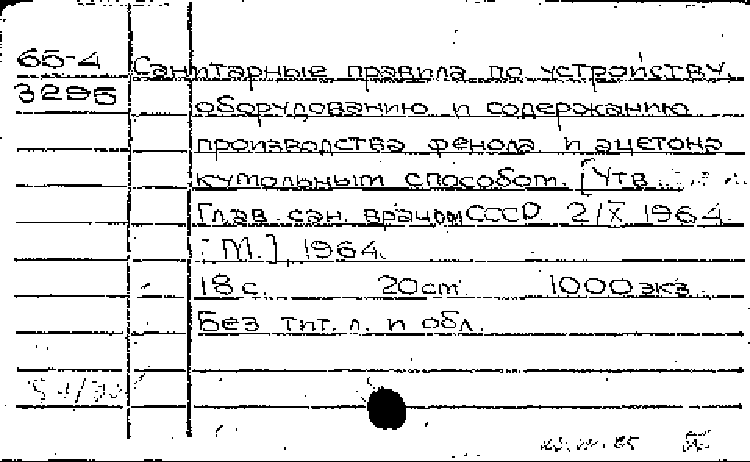 65-4
3295
Санитарные правила по устройству,
оборудованию и содержанию
производства фенола и ацетона
кумольным способом. [Утв.
Глав. сан. врачом СССР 2/IX 1964.
[М.], 1964.
18 с. 20 см 1000 экз.
Без тит. л. и обл.